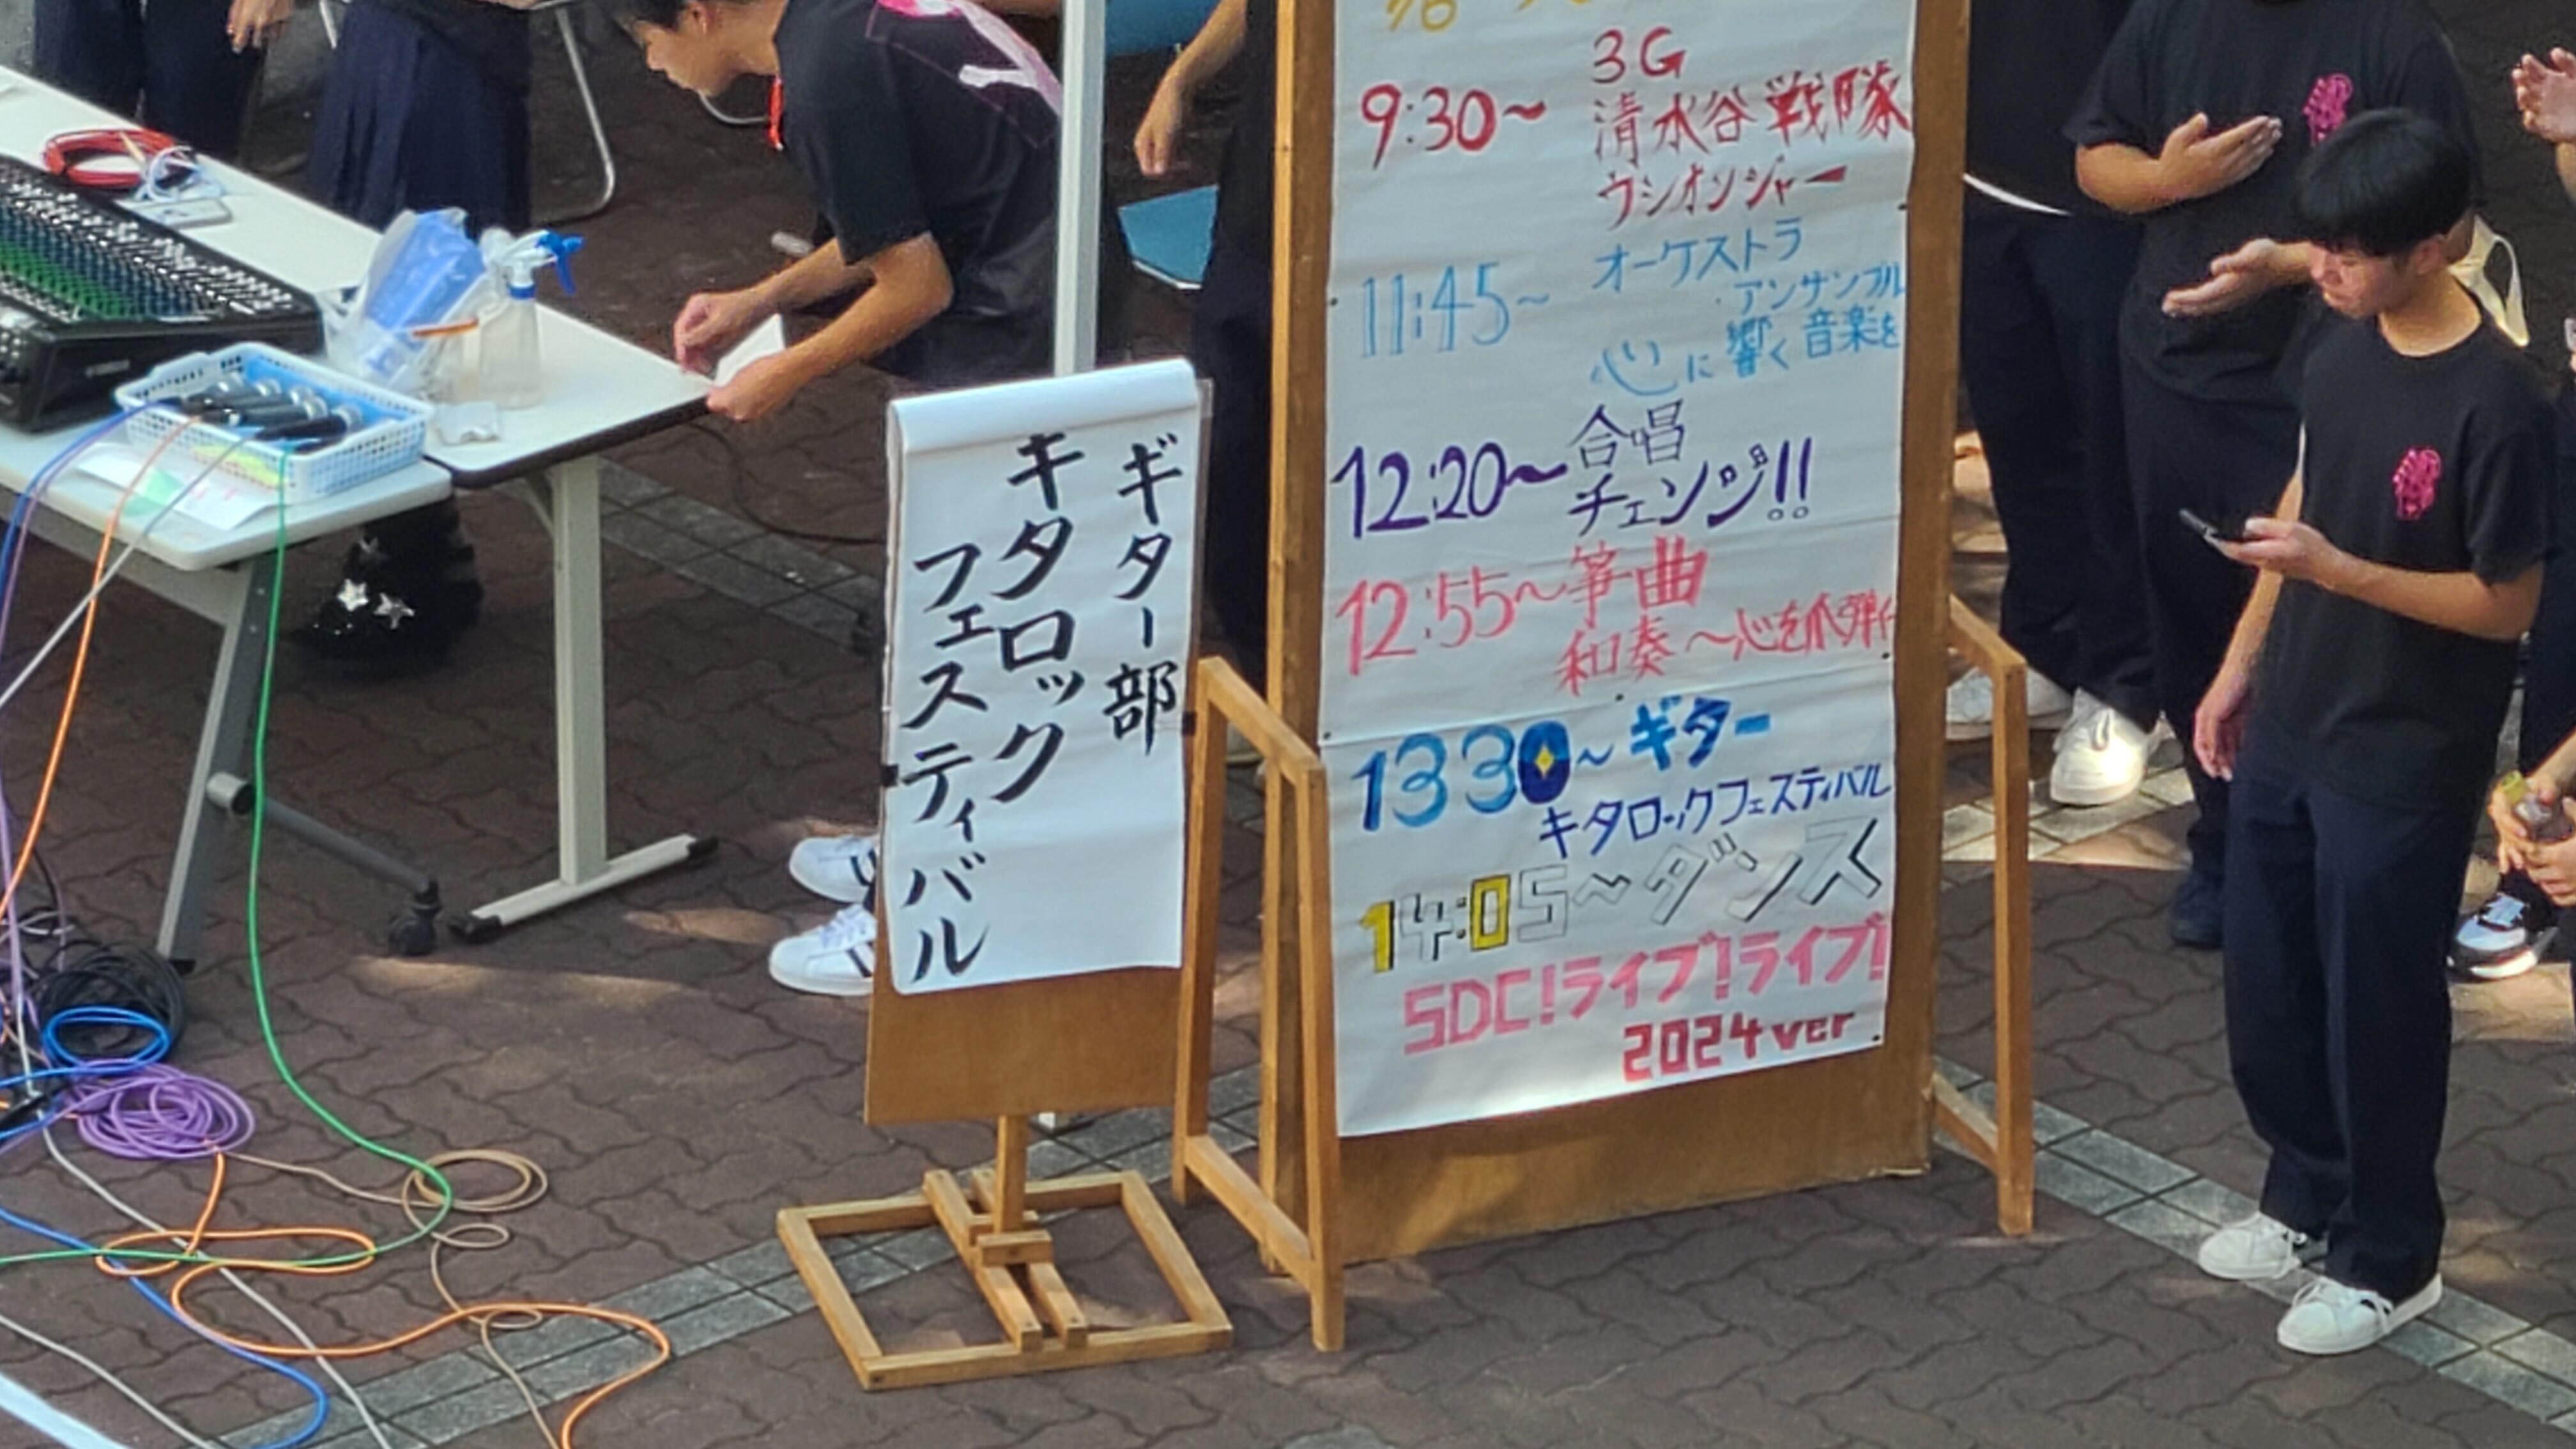 ギター部
キタロック
フェスティバル
9:30~
3G
清水谷戦隊
ウシオンジャー
11:45~
オーケストラ
アンサンブル
心に響く音楽を
12:20~
合唱
チェンジ!!
12:55~
箏曲
和奏~心を爪弾く
1330~ギター
キタロックフェスティバル
14:05~ダンス
SDC!ライブ!ライブ!
2024ver